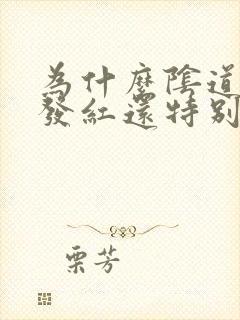 為什麼陰道
發紅還特別
栗芳